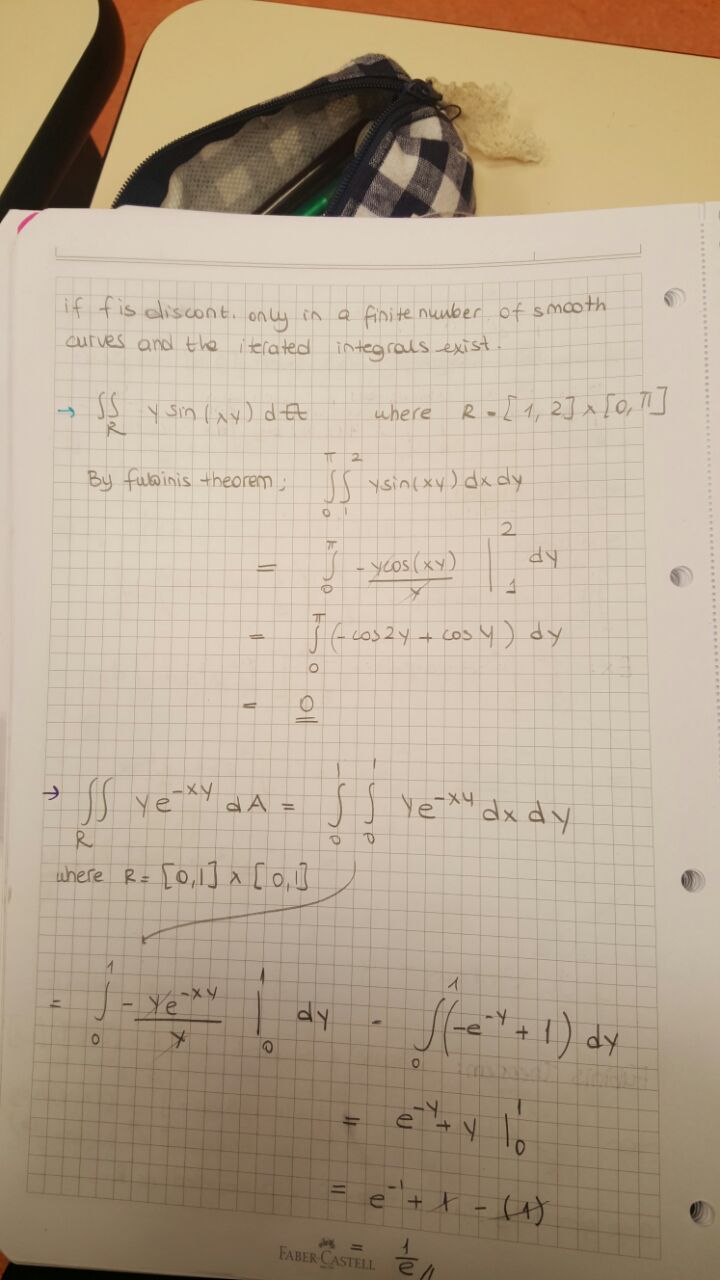 if f is discont. only in a finite number of smooth
curves and the iterated integrals exist.
→ ∬_R y sin(xy) dA where R = [1, 2] x [0, π]
By fubinis theorem; ∫_0^π ∫_1^2 y sin(xy) dx dy
= ∫_0^π - ycos(xy)/y |_1^2 dy
= ∫_0^π (-cos2y + cosy) dy
= 0
→ ∬_R ye^-xy dA = ∫_0^1 ∫_0^1 ye^-xy dx dy
where R = [0,1] x [0,1]
= ∫_0^1 - ye^-xy/y |_0^1 dy = ∫_0^1 (-e^-y + 1) dy
= e^-y + y |_0^1
= e^-1 + 1 - (1)
FABER-CASTELL = 1/e //